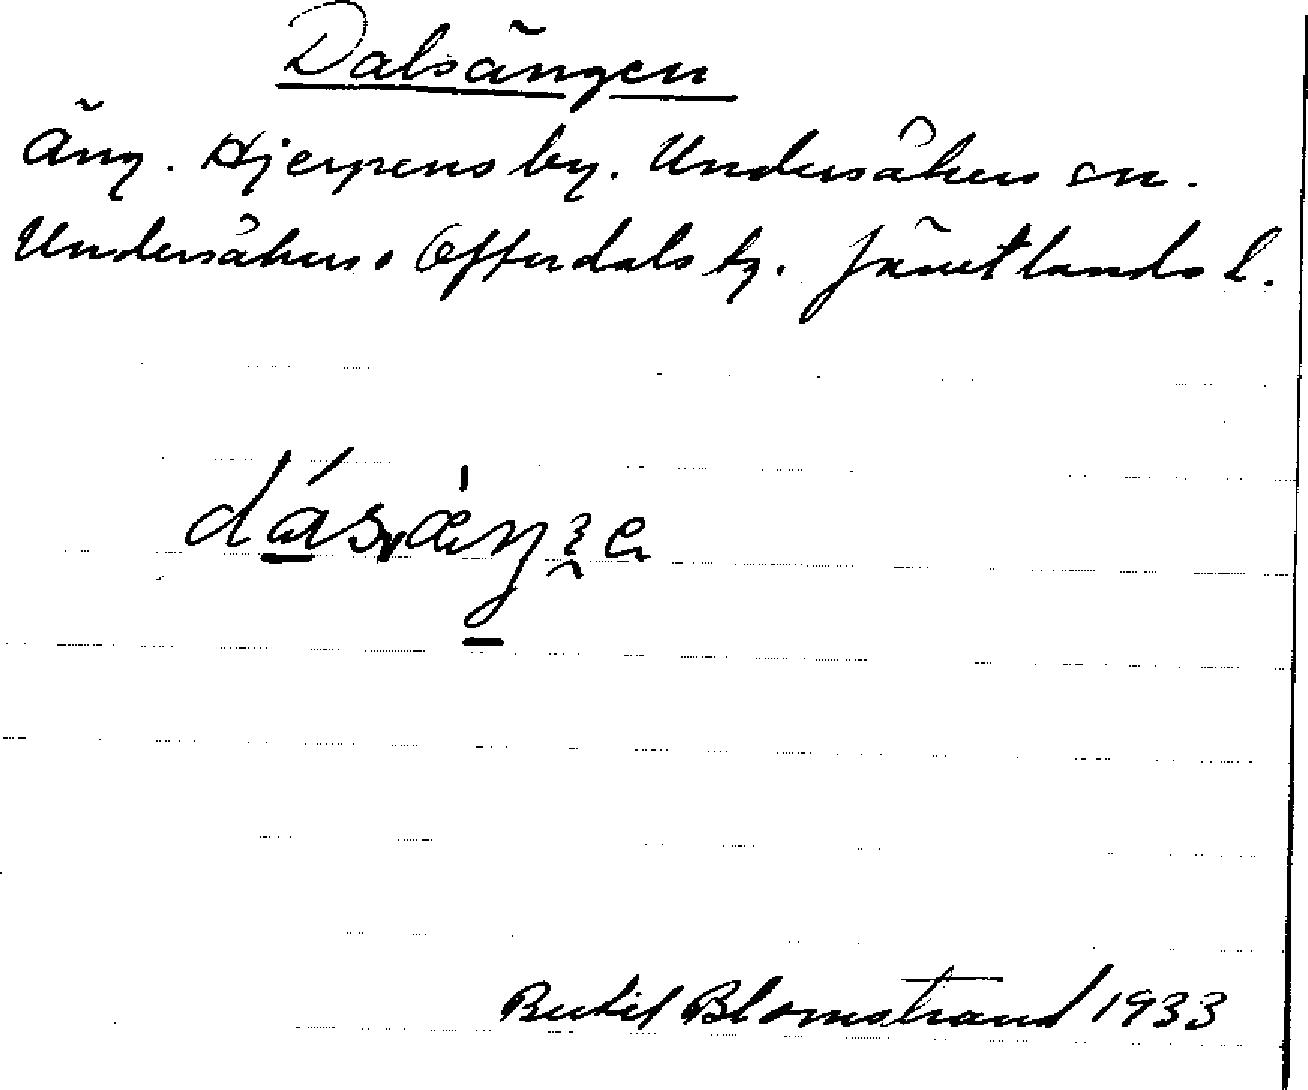 Dalsängen
Äng. Hjerpens by. Undersåkers sn.
Undersåkers o Offerdals tg. Jämtlands l.
Bertil Blomstrand 1933